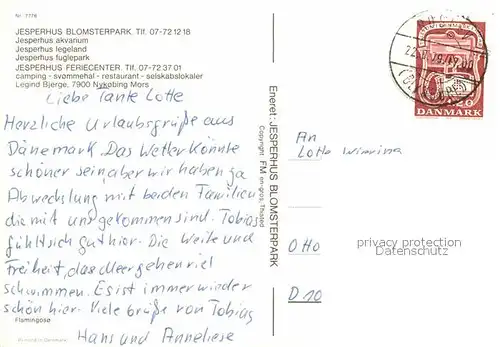 Nr. 7778
JESPERHUS BLOMSTERPARK Tlf. 07-72 12 18
Jesperhus akvarium
Jesperhus legeland
Jesperhus fuglepark
JESPERHUS FERIECENTER. Tlf. 07-72 37 01
camping - svømmehal - restaurant - selskabslokaler
Legind Bjerge, 7900 Nykøbing Mors
Liebe Tante Lotte
Herzliche Urlaubsgrüße aus
Dänemark. Das Wetter könnte
schöner sein, aber wir haben ja
Abwechslung mit beiden Familien
die mit uns gekommen sind. Tobias
fühlt sich gut hier. Die Weite und
Freiheit, das Meer gehen viel
schwimmen. Es ist immer wieder
schön hier. Viele Grüße von Tobias
Hans und Anneliese
Flamingosø
Printed in Denmark
Eneret: JESPERHUS BLOMSTERPARK
Copyright FM en-gros, Thisted
DANMARK
An
Lotte
OHO
D 10
privacy protection
Datenschutz